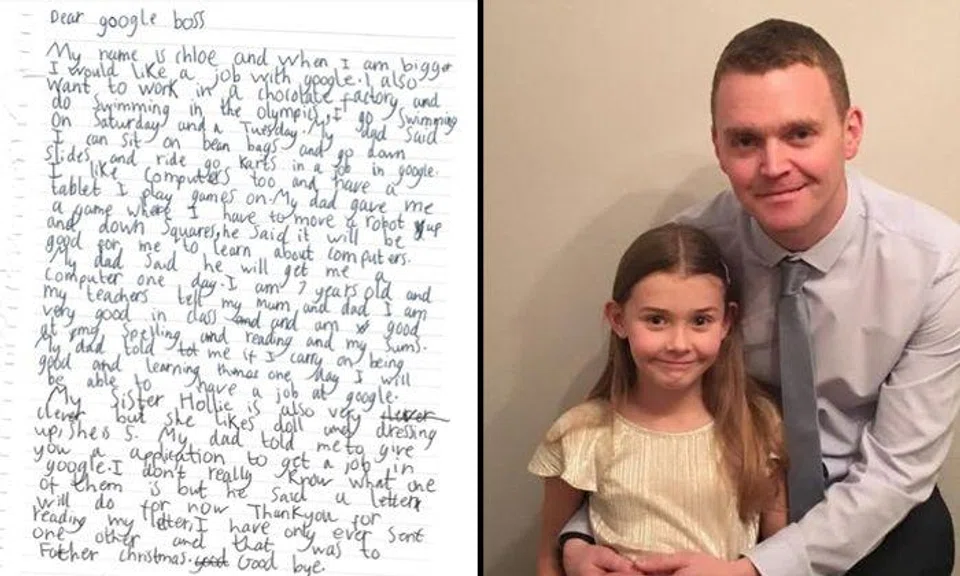 Dear google boss
My name is chloe and when I am bigger
I would like a job with google. I also
want to work in a chocolate factory and
do swimming in the olympics, I go Swimming
on Saturday and a Tuesday. My dad said
I can sit on bean bags and go down
slides and ride go karts in a job in google.
I like computers too and have a
tablet I play games on. My dad gave me
a game where I have to move a robot up
and down squares, he said it will be
good for me to learn about computers.
My dad said he will get me a
computer one day. I am 7 years old and
my teachers tell my mum and dad I am
very good in class and and am good
at my spelling and reading and my sums.
My dad told me if I carry on being
good and learning one day I will
be able to have a job at google.
My Sister Hollie is also very clever
clever but she likes doll and dressing
up, she is 5. My dad told me to give
you a application to get a job in
google. I don't really know what one
of them is but he said a letter
will do for now Thankyou for
reading my letter, I have only ever sent
one other and that was to
Father christmas. good Good bye.